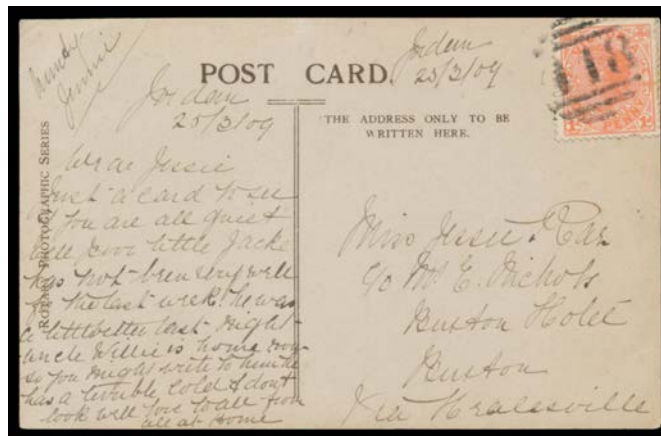 POST CARD.
Jordan
25/3/09
Jordan
25/3/09
THE ADDRESS ONLY TO BE
WRITTEN HERE.
ROTARY PHOTOGRAPHIC SERIES
PENNY
Dear Jessie
Just a card to see
you are all quiet
well poor little Jacke
has not been very well
for the last week. he was
a little better last night
uncle Willie is home now
so you might write to him he
has a terrible cold & dont
look well love to all from
all at Home
Miss Jessie
c/o Mr E. Nichols
Buxton Hotel
Buxton
Via Healesville